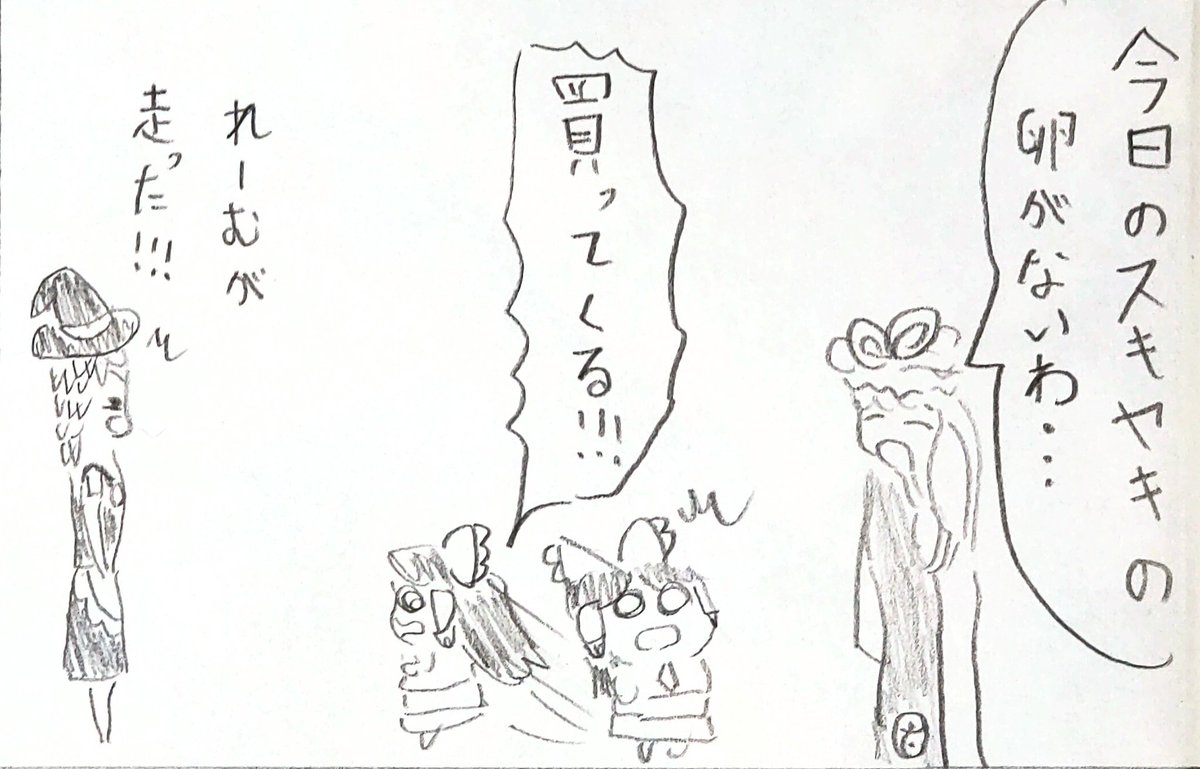 今日のスキヤキの
卵がないわ…
買ってくる!!!
れーむが
走った!!!